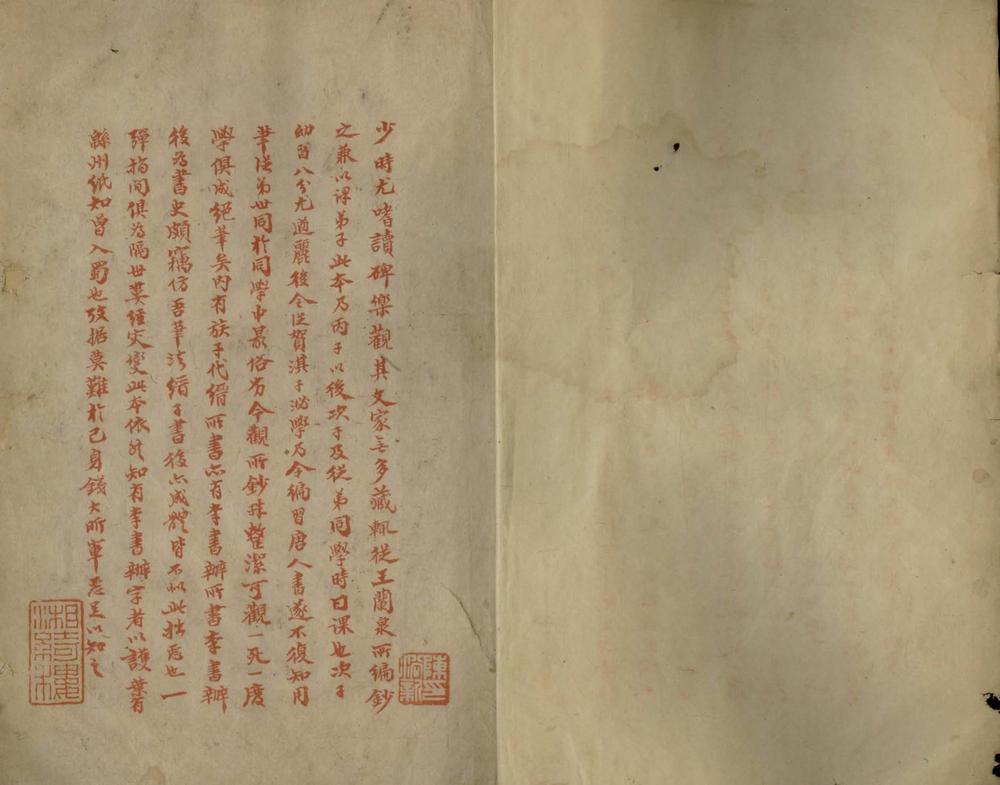 少時尤嗜讀碑樂觀其文家無多藏輒從王蘭泉所編鈔
之兼以課弟子此本乃丙子以後次子及從弟同學時日課也次子
幼習八分尤遒麗後令從賀淇子泌學乃令編習唐人書遂不復知用
筆從弟世同於同學中最俗劣今觀所鈔殊整潔可觀一死一廢
學俱成絕筆矣內有族子代縉所書亦有李書辦所書李書辦
後為書史頗竊仿吾筆法縉子書後亦成體皆不似此拙惡也一
彈指間俱為隔世婁經灾變此本依然知有李書辦字者以護葉有
緜州紙知曾入蜀也攷据莫難於己身錢大昕軍
以知之